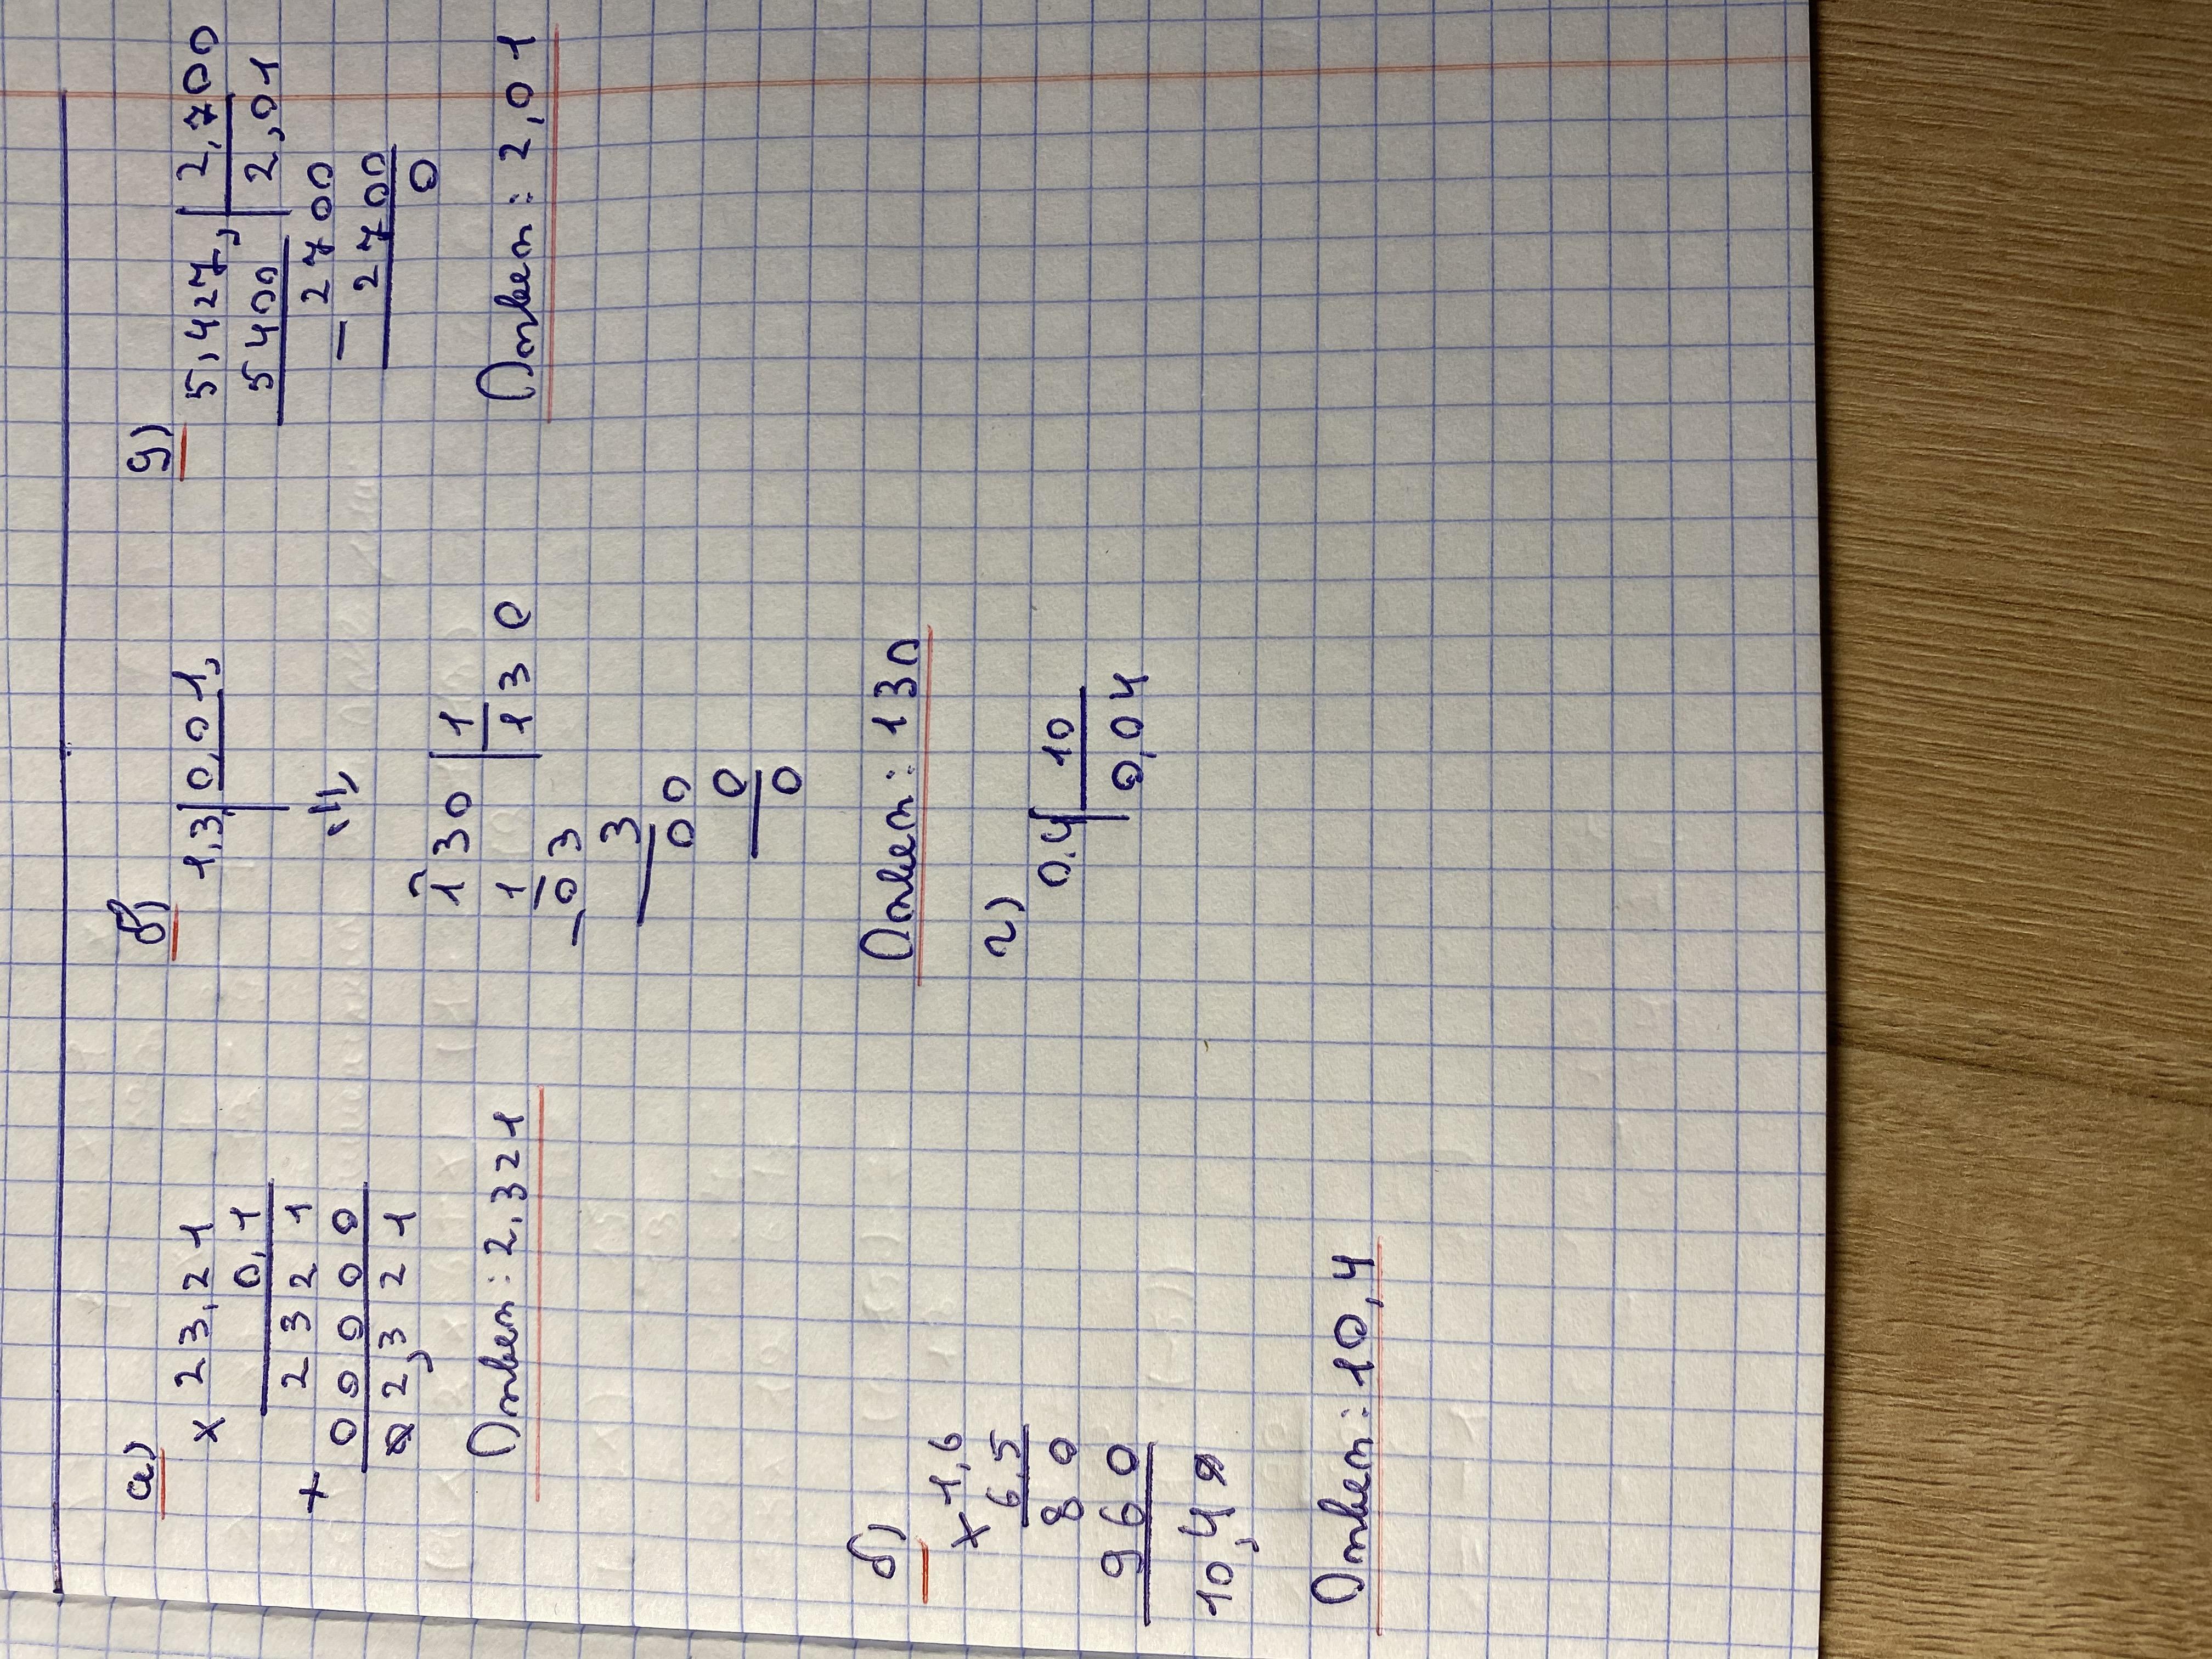 а)
× 23,21
0,1
2321
+ 00000
02,321
Ответ: 2,321
б)
× 1,6
6,5
80
960
10,40
Ответ: 10,4
в)
1,3 | 0,01,
130 | 1
1 | 130
- 03
3
00
0
0
Ответ: 130
г)
0,4 | 10
0,04
д)
5,427, | 2,700
5400 | 2,01
2700
- 2700
0
Ответ: 2,01